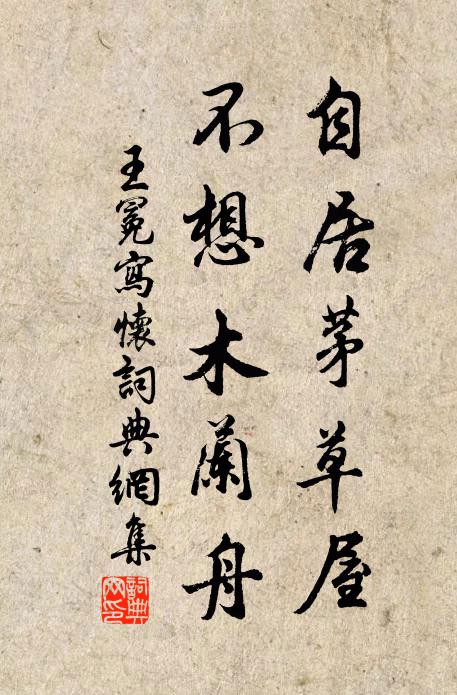 自居茅草屋
不想木蘭舟
王冕寫懷詞典網集
詞典网印